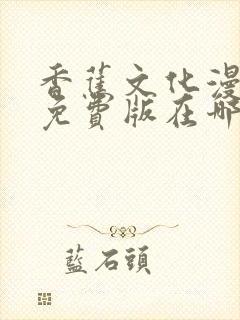 香蕉文化漫
免費版在哪
藍石頭